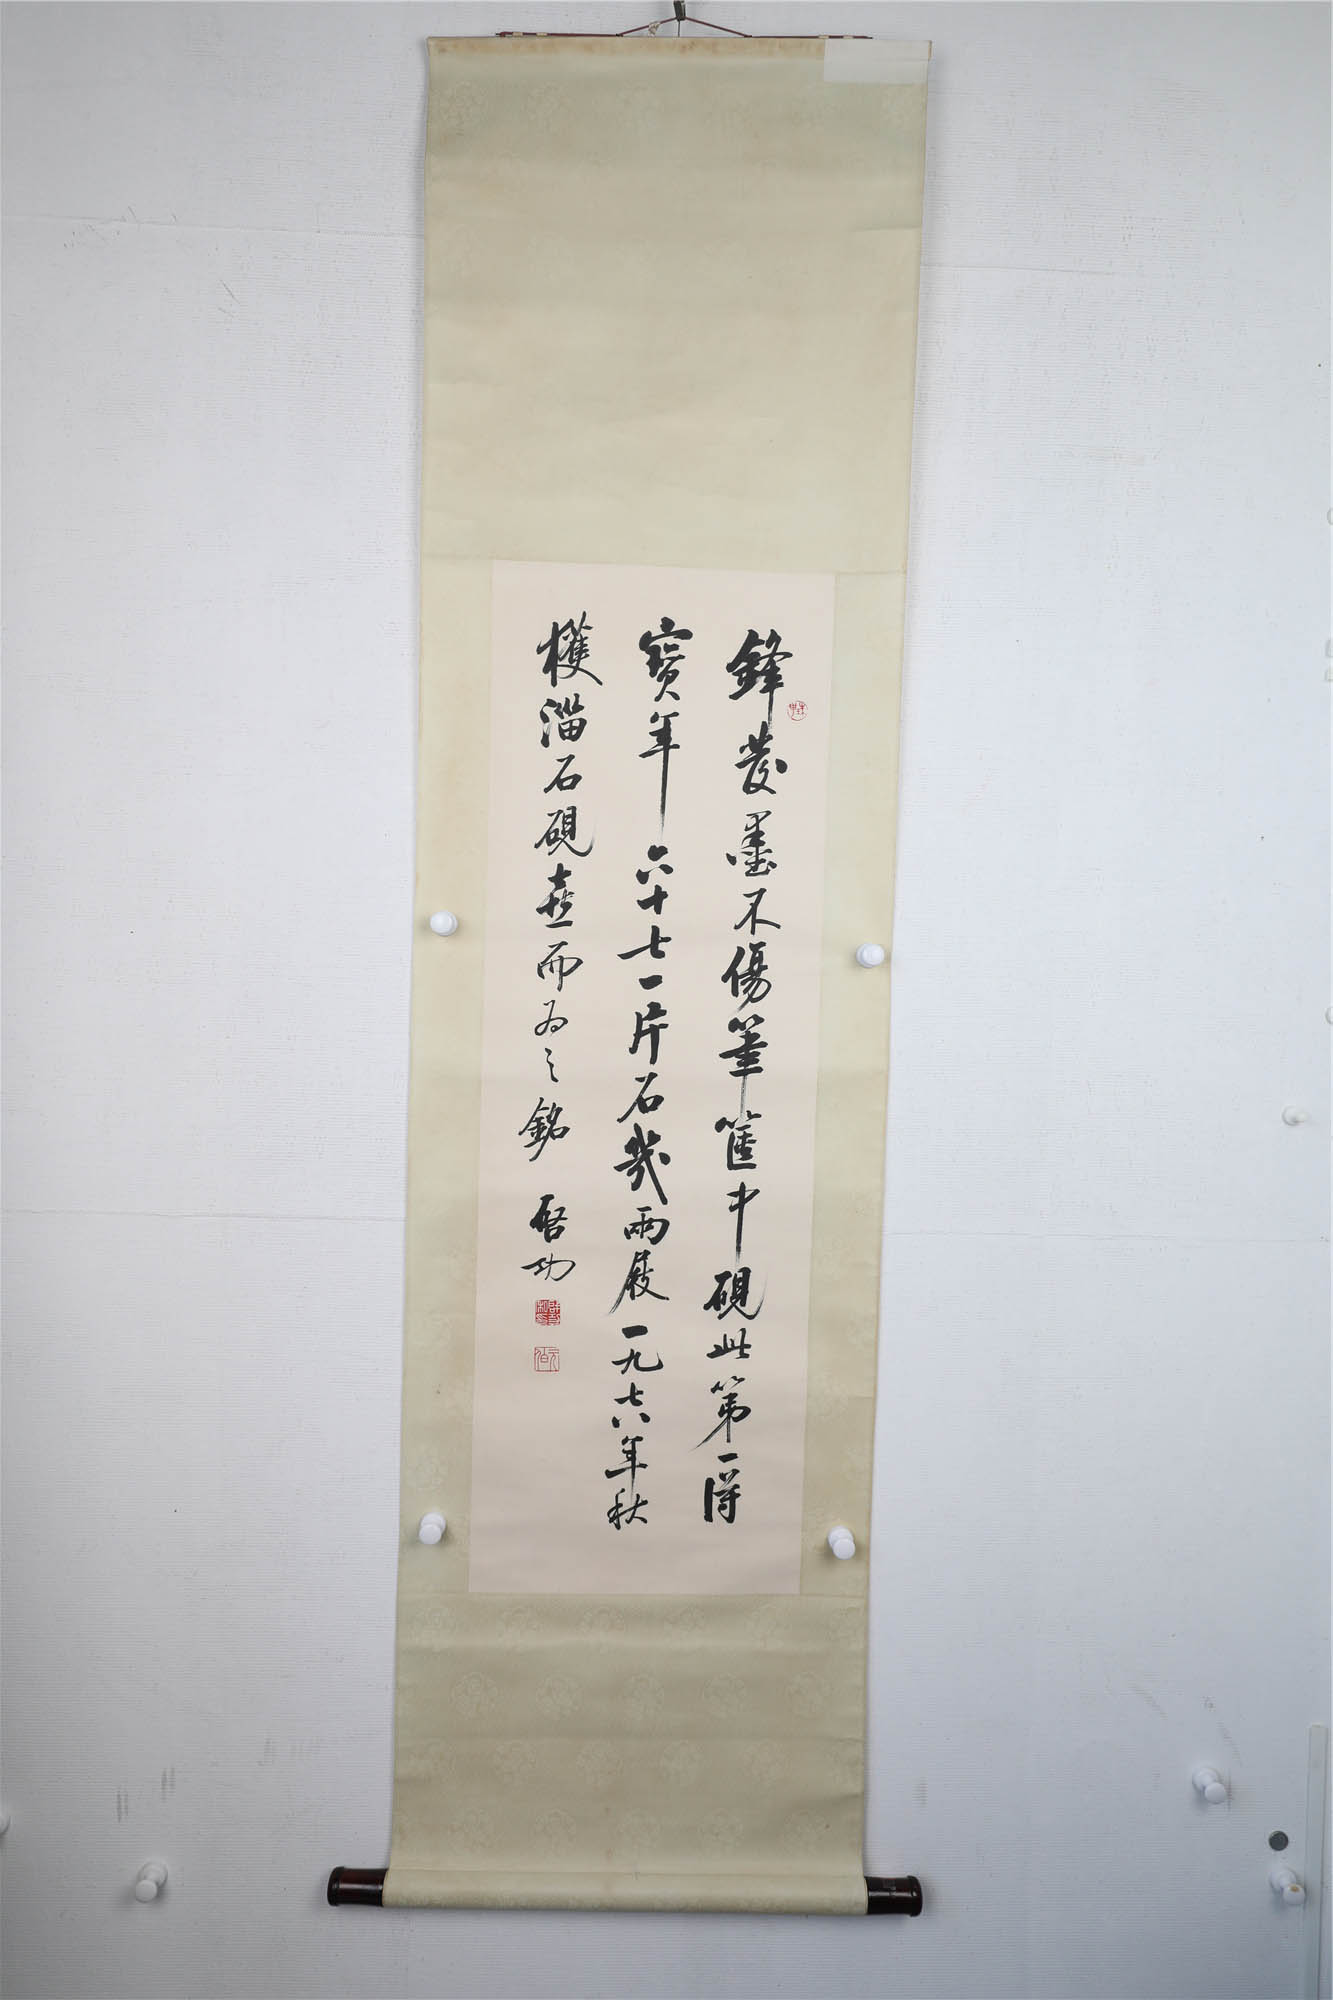 鋒發墨不傷筆篋中硯此第一得
寶年六十七一片石幾兩屐一九七八年秋
獲淄石硯喜而為之銘 啓功